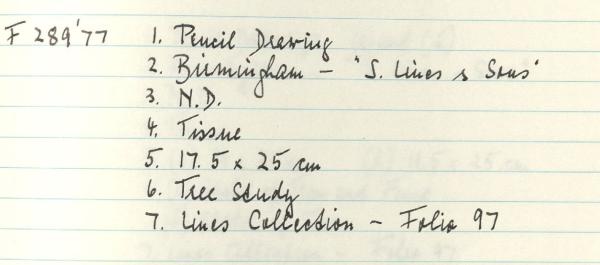 F 289'77 1. Pencil Drawing
2. Birmingham - "S. Lines & Sons"
3. N.D.
4. Tissue
5. 17.5 x 25 cm
6. Tree Study
7. Lines Collection - Folio 97